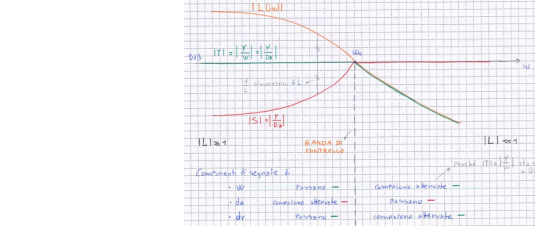 |L(jω)|
|T| = |Y/W| = |Y/Dr|
ωc
0dB
ω
simmetrico di L
|S| = |Y/Da|
|L| ≫ 1
BANDA DI
CONTROLLO
|L| ≪ 1
perché |T| = |Y/W|
Componenti di segnale di
• W Passano – compaiono attenuate –
• da compaiono attenuate – Passano –
• dr Passano – compaiono attenuate –